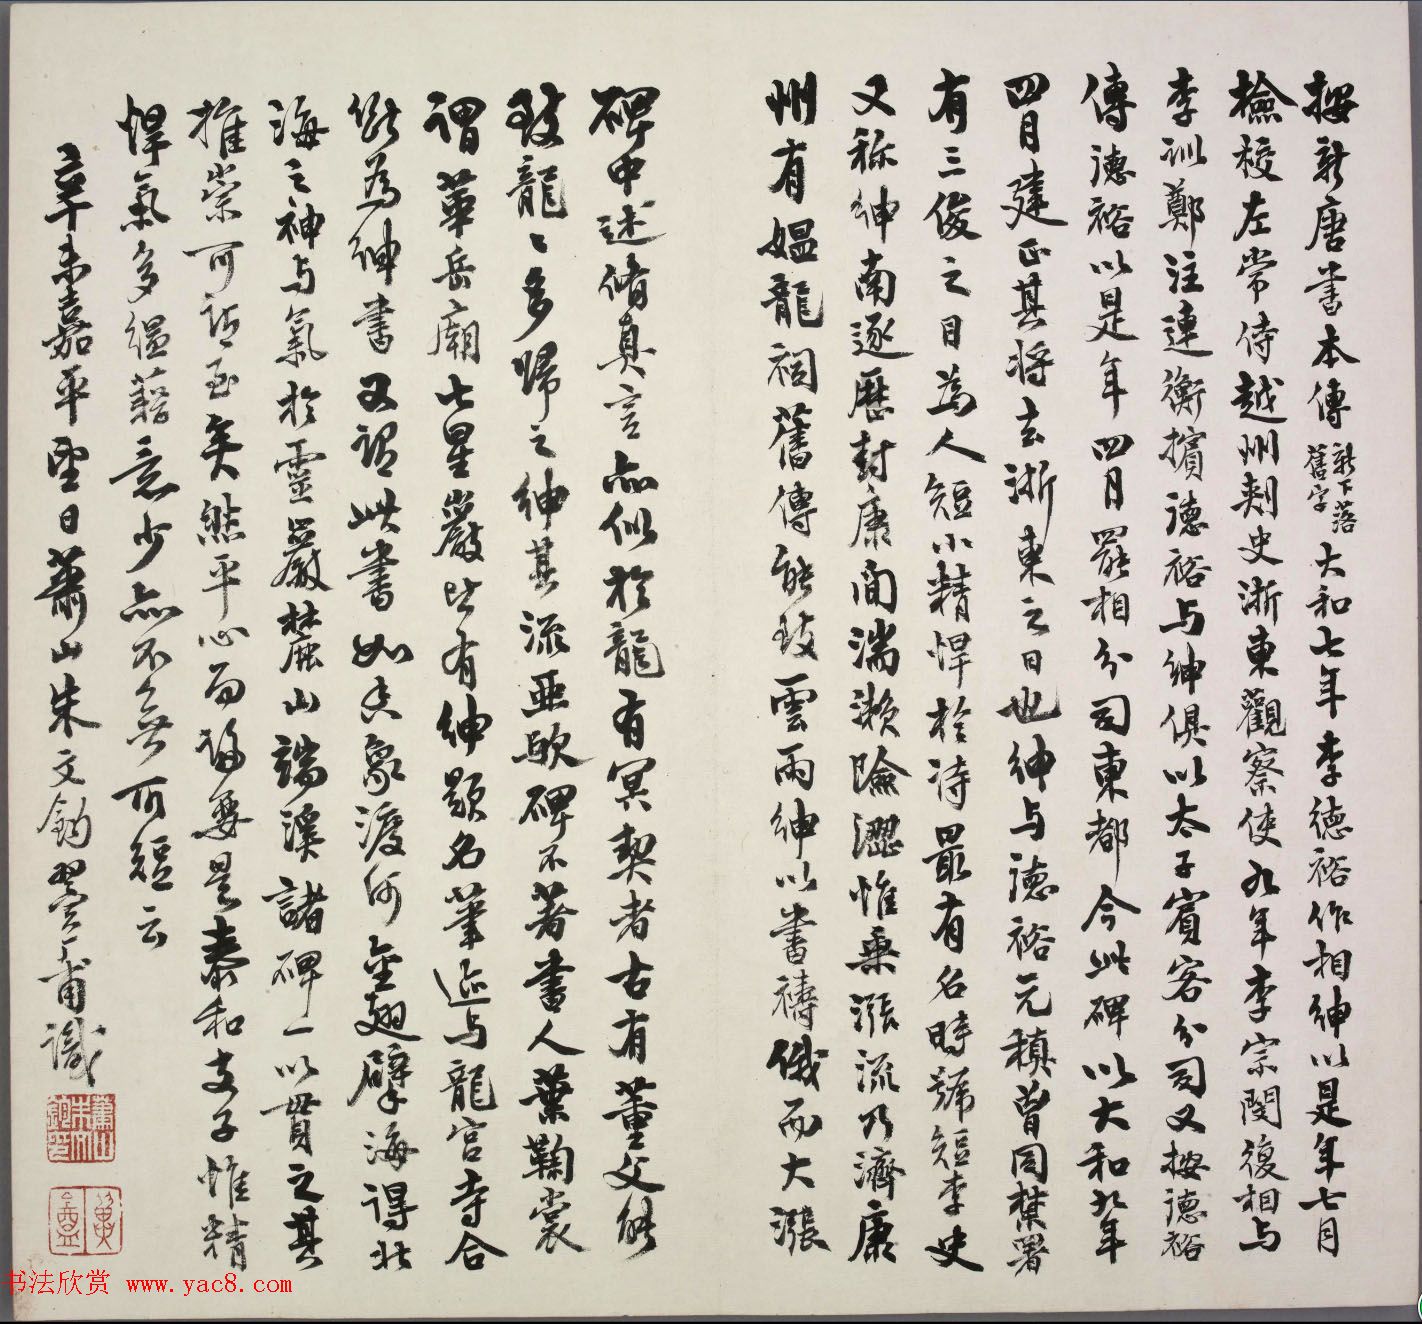 按新唐書本傳新下落舊字大和七年李德裕作相紳以是年七月
檢校左常侍越州刺史浙東觀察使九年李宗閔復相与
李訓鄭注連衡擯德裕与紳俱以太子賓客分司又按德裕
傳德裕以是年四月罷相分司東都今此碑以大和九年
四月建正其將去浙東之日也紳与德裕元稹曾同禁署
有三俊之目為人短小精悍於詩最有名時號短李史
又称紳南逐歷封康間湍瀨險澀惟乗漲流乃濟康
州有媼龍祠舊傳能致雲雨紳以書禱俄而大漲
碑中述脩真言亦似於龍有冥契者古有董父能
致龍龍多歸之紳其流亞歟碑不著書人葉鞠裳
謂華岳廟七星巖皆有紳題名筆迹与龍宮寺合
斷為紳書又謂此書如香象渡河金翅擘海得北
海之神与氣於靈巖麓山端溪諸碑一以貫之其
推崇可謂至矣然平心而論要是泰和支子惟精
悍氣多蘊藉意少亦不無可短云
辛未嘉平望日蕭山朱文鈞翼厂甫識
蕭山朱文鈞印
翼盦
书法欣赏 www.yac8.com